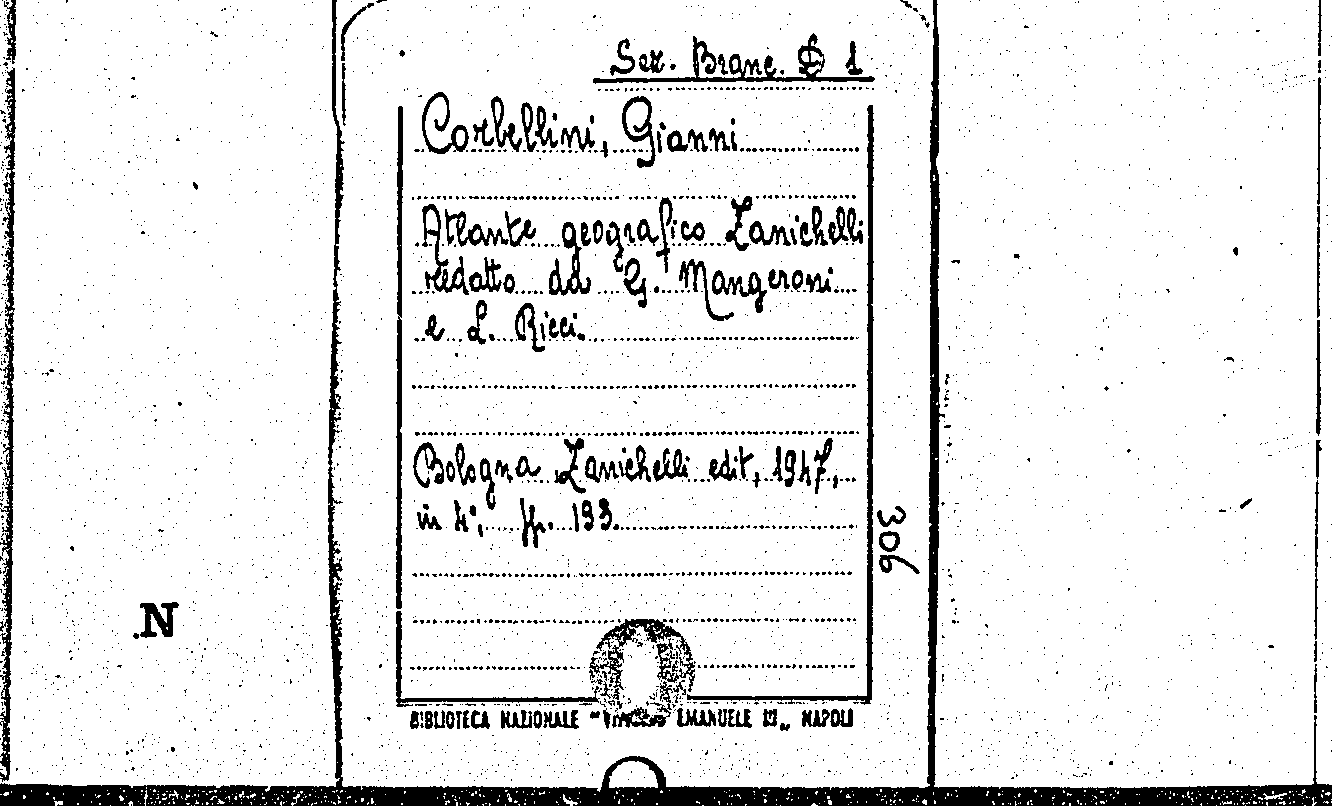 Sez. Branc. 1
Corbellini, Gianni
Atlante geografico Zanichelli
redatto da G. Mangeroni
e L. Ricci.
Bologna Zanichelli edit, 1947,
in 4°, ff. 193.
306
.N
BIBLIOTECA NAZIONALE "VITTORIO EMANUELE III„ NAPOLI